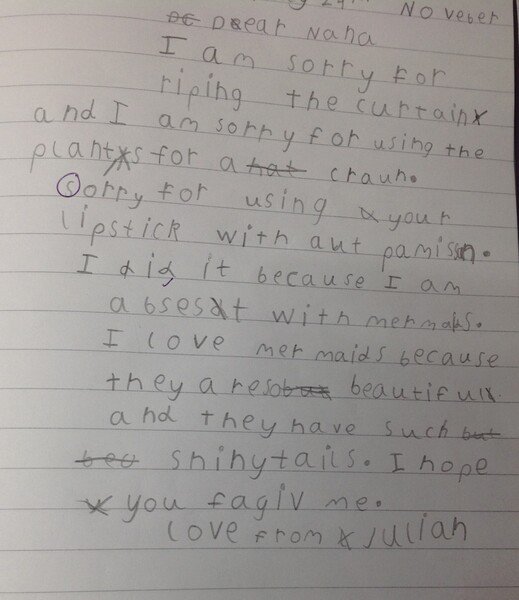 29th Noveber
Dear Nana
I am sorry for
riping the curtain
and I am sorry for using the
plants for a hat craun.
Sorry for using your
lipstick with aut pamissn.
I did it because I am
absest with mermads.
I love mer maids because
they are so beautiful
and they have such but
shiny tails. I hope
you fagiv me.
love from Julian